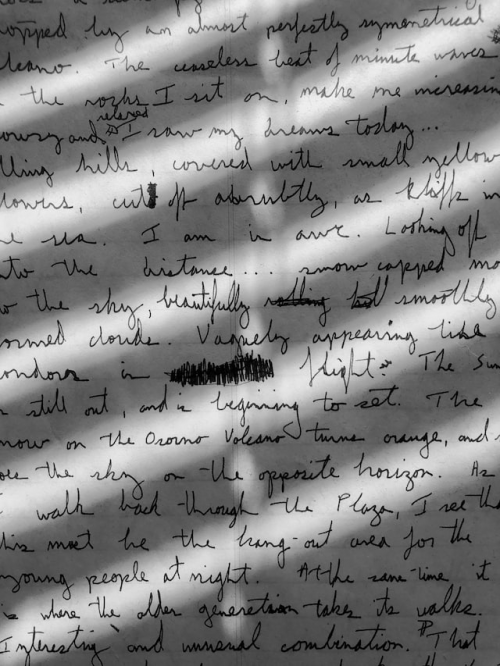 topped by an almost perfectly symmetrical
lcano. The ceaseless beat of minute waves
the rocks I sit on, make me increasin
relaxed
owsy and I saw my dreams today...
lling hills, covered with small yellow
lowers, cut off abrubtly, as kliffs in
he sea. I am in awe. Looking off
nto the distance.... snow capped mo
o the sky, beautifully rolling smoothly
ormed clouds. Vaguely appearing like
ondors in flight. The Sun
s still out, and is beginning to set. The
now on the Osorno Volcano turns orange, and
ole the sky on the opposite horizon. As
I walk back through the Plaza, I see tha
his most be the hang-out area for the
young people at night. At the same time it
is where the older generation takes its walks.
Interesting and unusual combination. That